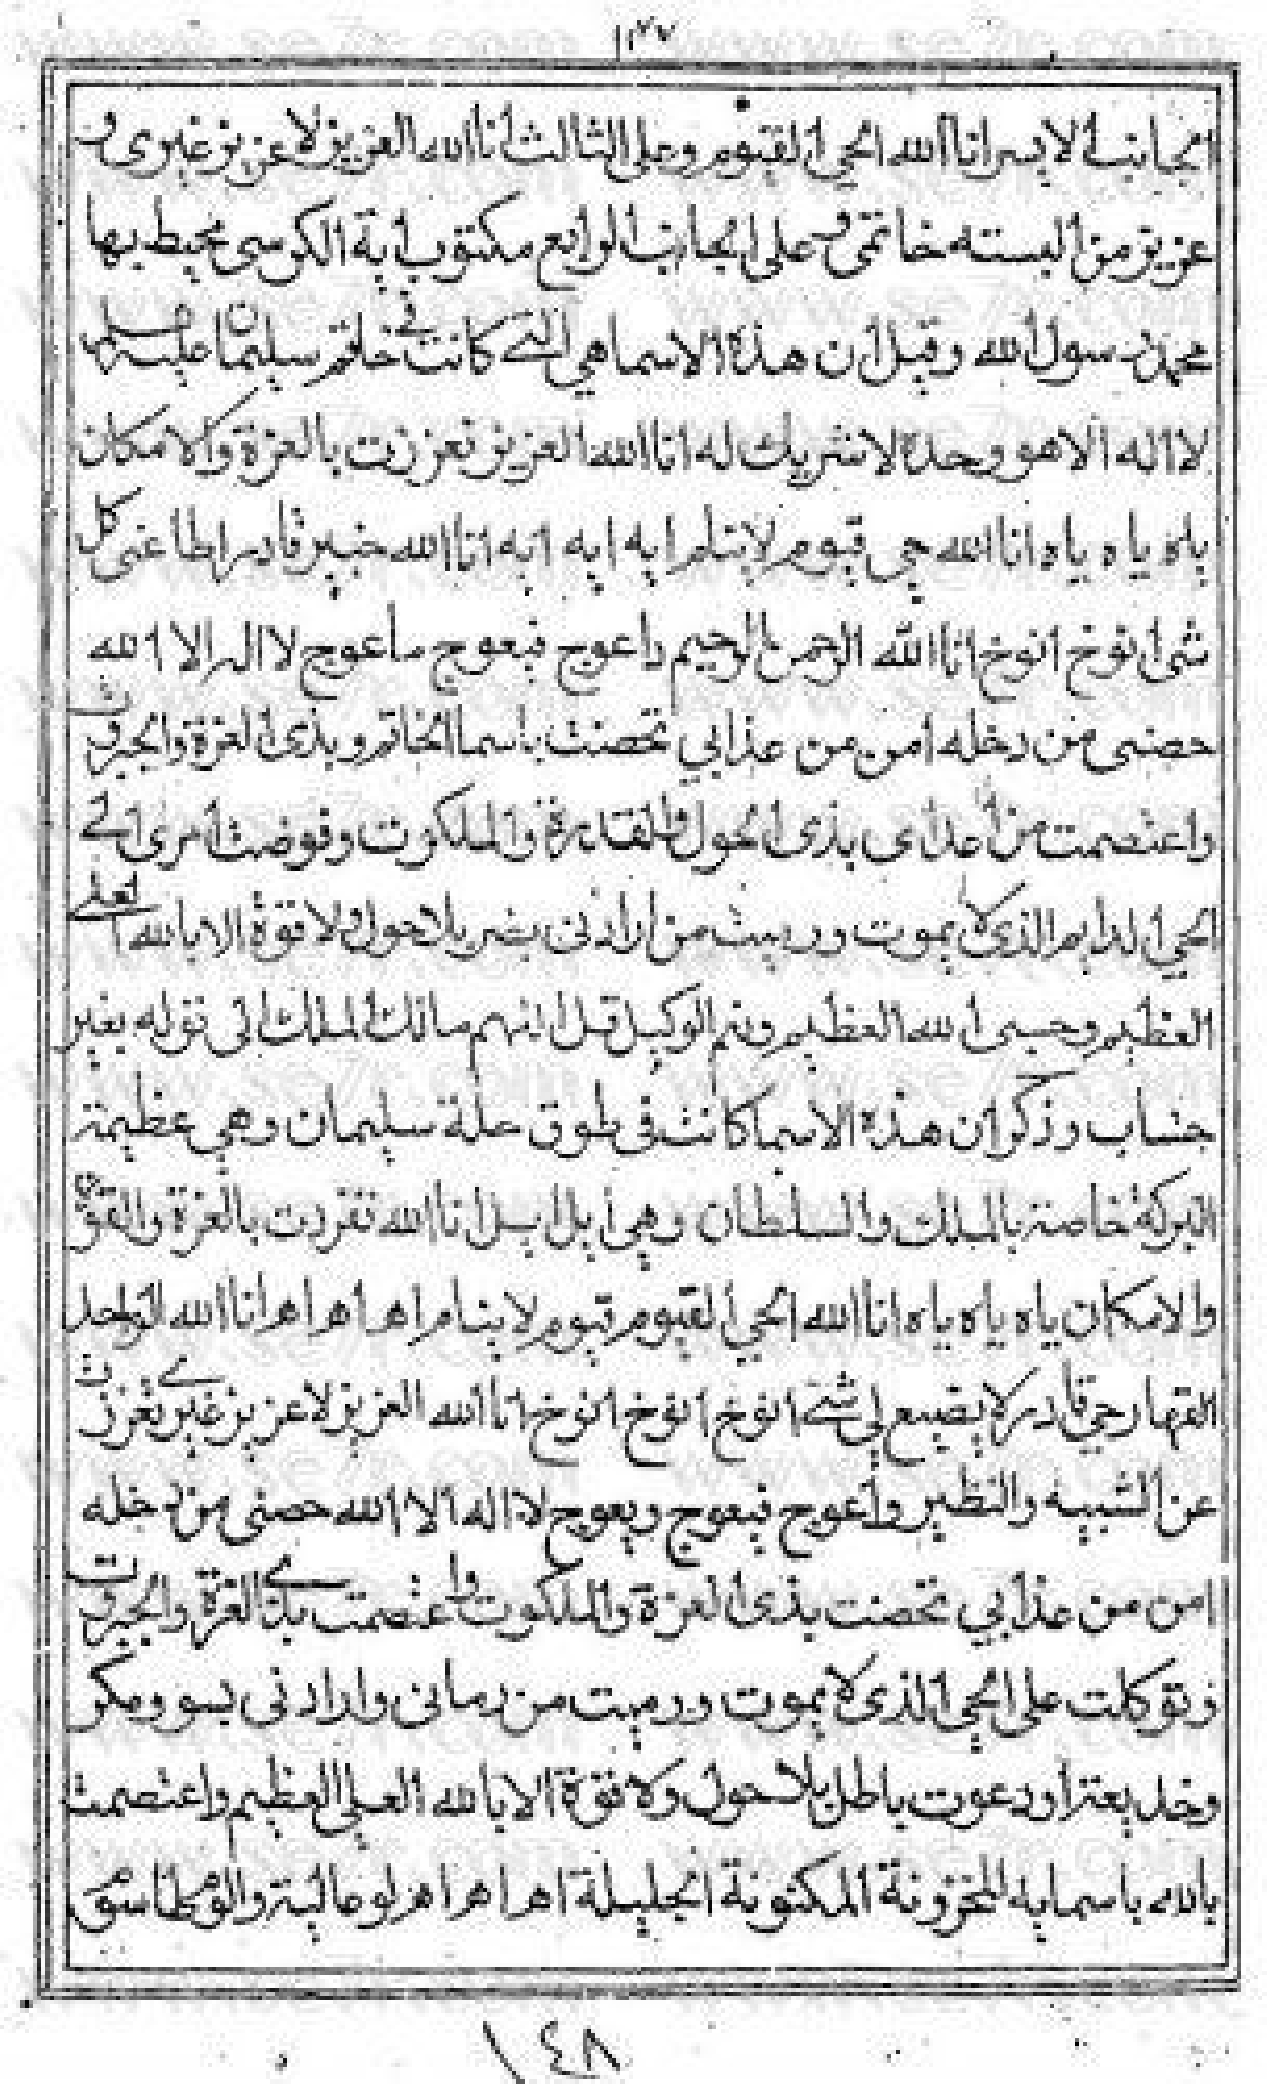 ١٢٧
الجانب الايسر انا الله الحي القيوم وعلى الثالث انا الله العزيز لا عزيز غيرى و
عزيز من البسته خاتمى وعلى الجانب الرابع مكتوب اية الكرسى محيط بها
محمد رسول الله وقيل ان هذه الاسما هي التى كانت فى خاتم سليمان عليه
لا اله الا هو وحده لا شريك له انا الله العزيز تعززت بالعزة والامكان
ياه ياه ياه انا الله حي قيوم لا ينام ايه ايه ايه انا الله خبير قادر اطاعنى كل
شى انوخ انوخ انا الله الرحمن الرحيم داعوج فيعوج ماعوج لا اله الا الله
حصنى من دخله امن من عذابي تحصنت باسما الخاتم وبذى العزة والجبروت
واعتصمت من اعداى بذى الحول والقدرة والملكوت وفوضت امرى الى
الحي الدايم الذى لا يموت ورميت من ارادنى بضر بلا حول ولا قوة الا بالله العلى
العظيم وحسبى الله العظيم ونعم الوكيل قل اللهم مالك الملك الى قوله بغير
حساب وذكر ان هذه الاسما كانت فى طوق حلة سليمان وهي عظيمة
البركة خاصة بالملك والسلطان وهي ايل ايل انا الله تفردت بالعزة والقوة
والامكان ياه ياه ياه انا الله الحي القيوم قيوم لا ينام اهرا هرا هرانا الله الواحد
القهار حي قادر لا يضيع لى شى انوخ انوخ انوخ انا الله العزيز لا عزيز غيرى تعززت
عن الشبيه والنظير واعوج فيعوج ويعوج لا اله الا الله حصنى من دخله
امن من عذابي تحصنت بذى العزة والملكوت واعتصمت بذى العزة والجبروت
وتوكلت على الحي الذى لا يموت ورميت من رمانى وارادنى بسو ومكر
وخديعة او دعوت باطل بلا حول ولا قوة الا بالله العلى العظيم واعتصمت
بالله باسمايه المخزونة المكنونة الجليلة اهرا هرا هر لوعالية
١٤٨